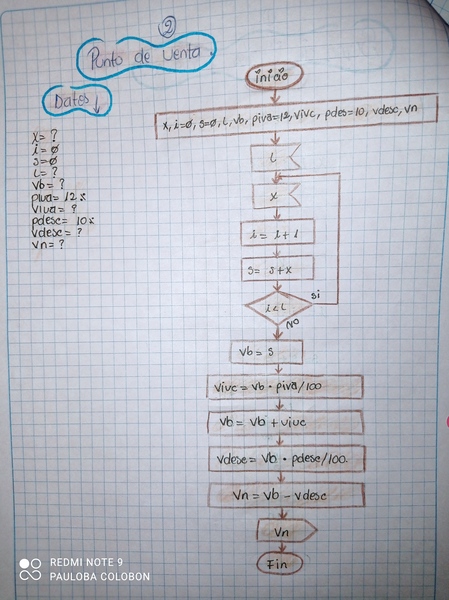 ②
Punto de venta.
Datos ↓
x = ?
i = ø
s = ø
l = ?
vb = ?
piva = 12%
viva = ?
pdesc = 10%
vdesc = ?
vn = ?
inicio
x, i=ø, s=ø, l, vb, piva=12, vivc, pdes=10, vdesc, vn
l
x
i = i + 1
s = s + x
i < l
si
NO
vb = s
vivc = vb · piva/100
vb = vb + vivc
vdesc = vb · pdesc/100.
vn = vb - vdesc
vn
Fin
REDMI NOTE 9
PAULOBA COLOBON